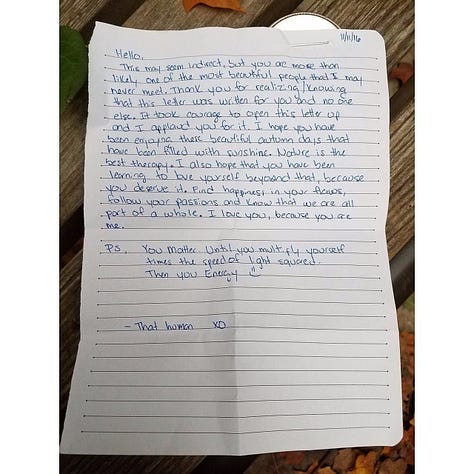 11/11/16
Hello,
This may seem indirect, but you are more than
likely one of the most beautiful people that I may
never meet. Thank you for realizing/knowing
that this letter was written for you and no one
else. It took courage to open this letter up
and I applaud you for it. I hope you have
been enjoying these beautiful autumn days that
have been filled with sunshine. Nature is the
best therapy. I also hope that you have been
learning to love yourself beyond that, because
you deserve it. Find happiness in your flaws,
follow your passions and know that we are all
part of a whole. I love you, because you are
me.
PS. You Matter. Until you multiply yourself
times the speed of light squared.
Then you Energy
- That human XO